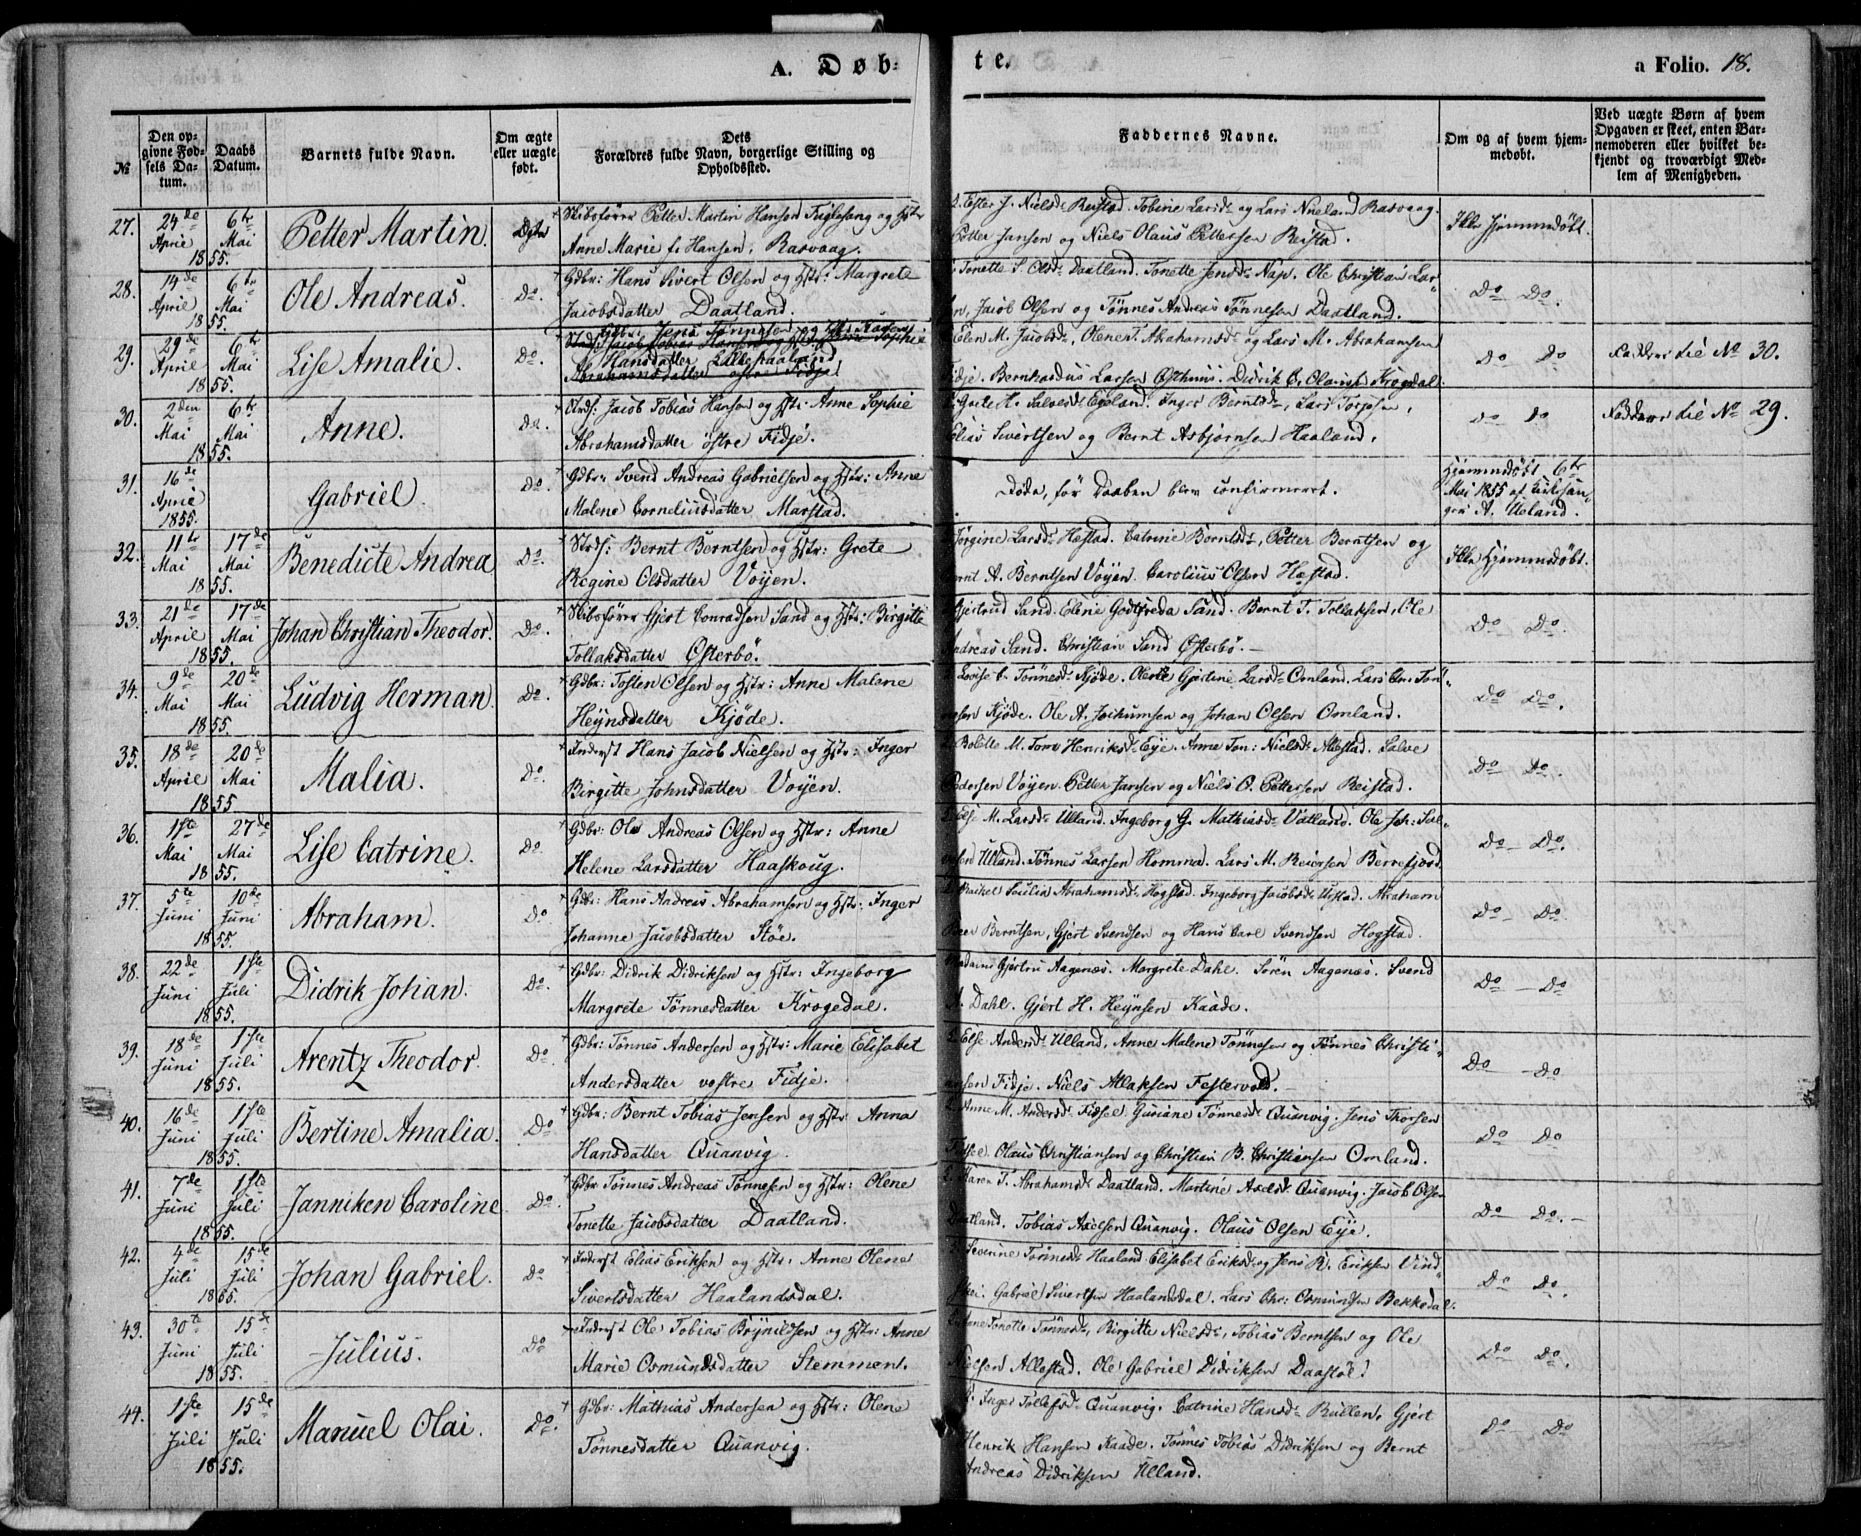 A. Døb-
te.
a Folio. 18.
№
Den op-
givne Fød-
sels Da-
tum.
Daabs
Datum.
Barnets fulde Navn.
Om ægte
eller uægte
født.
Dets
Forældres fulde Navn, borgerlige Stilling og
Opholdssted.
Faddernes Navne.
Om og af hvem hjem-
medøbt.
Ved uægte Børn af hvem
Opgaven er skeet, enten Bar-
nemoderen eller hvilket be-
kjendt og troværdigt Med-
lem af Menigheden.
27. 24de April 1855. 6te Mai Petter Martin. Ægte
Skibsfører Petter Martin Hansen Fuglesang og Hstr
Anne Marie f. Hansen, Rasvaag.
Ester J. Nielsd. Reistad. Tobine Larsd. og Lars Nueland Rasvaag.
Petter Jansen og Niels Olaus Pettersen Reistad.
Ikke hjemmedøbt.
28. 14de April 1855. 6te Mai Ole Andreas. Do.
Gdbr: Hans Sivert Olsen og Hstr: Margrete
Jacobsdatter Daatland.
Tonette S. Olsd. Daatland. Tonette Jensd. Nap. Ole Christian Lar-
sen, Jacob Olsen og Tønnes Andreas Tønnesen Daatland.
Do Do.
29. 29de April 1855. 6te Mai Lise Amalie. Do.
Gdbr: Jens Tønnesen og Hstr: Karen
Strds: Jacob Tobias Hansen og Hstr: Anne Sophie
Hansdatter Lillehaaland
Abrahamsdatter østre Fidje.
Elen M. Jacobsd., Olene T. Abrahamsd. og Lars M. Abrahamsen
Fidje. Bernhardus Larsen Østhuus. Didrik C. Olauss. Krogdal.
Do Do
Faddere til No 30.
30. 2den Mai 1855. 6te Mai Anne. Do.
Strds: Jacob Tobias Hansen og Hstr: Anne Sophie
Abrahamsdatter østre Fidje.
Grete H. Salvesd. Egeland. Inger Berntsd., Lars Torjesen,
Elias Sivertsen og Bernt Asbjørnsen Haaland.
Do Do
Faddere til No 29.
31. 16de April 1855. Gabriel. Do.
Gdbr: Svend Andreas Gabrielsen og Hstr: Anne
Malene Corneliusdatter Marstad.
Døde, før Daaben blev confirmeret.
Hjemmedøbt 6te
Mai 1855 af Kirkesan-
ger A. Ueland.
32. 11te Mai 1855. 17de Mai Benedicte Andrea Do.
Strds: Bernt Berntsen og Hstr: Grete
Regine Olsdatter Vøyen.
Jørgine Larsd. Høstad. Catrine Berntsd., Petter Berntsen og
Bernt A. Berntsen Vøyen. Carolius Olsen Høstad.
Ikke hjemmedøbt.
33. 21de April 1855. 17de Mai Johan Christian Theodor. Do.
Skibsfører Gjert Conradsen Sand og Hstr: Birgitte
Tollaksdatter Østerbø.
Gjertrud Sand. Elene Godtfreda Sand. Bernt T. Tollaksen, Ole
Andreas Sand. Christian Sand Østerbø.
Do Do.
34. 9de Mai 1855. 20de Mai Ludvig Herman. Do.
Gdbr: Tosten Olsen og Hstr: Anne Malene
Heynsdatter Kjøde.
Lovise C. Tønnesd. Kjøde. Olene Gjertine Larsd. Omland. Lars Chr. Tøn-
nesen Kjøde. Ole A. Jochumsen og Johan Olsen Omland.
Do Do.
35. 18de April 1855 20de Mai Malia. Do
Inderst Hans Jacob Nielsen og Hstr: Inger
Birgitte Johnsdatter Vøyen.
Bolette M. Tomo Henriksd. Eye. Anne Ton: Nielsd. Allestad. Salve
Pedersen Vøyen. Petter Jansen og Niels O. Pettersen Reistad.
Do Do.
36. 1ste Mai 1855. 27de Mai Lise Catrine. Do
Gdbr: Ole Andreas Olsen og Hstr: Anne
Helene Larsdatter Haaskoug.
Else M. Larsd. Ulland. Ingeborg G. Mathiasd. Vatland. Ole Joh: Sal-
vesen Ulland. Tønnes Larsen Homme. Lars M. Reiersen Berrefjord.
Do Do.
37. 5te Juni 1855. 10de Juni Abraham. Do
Gdbr: Hans Andreas Abrahamsen og Hstr: Inger
Johanne Jacobsdatter Støe.
Rachel Soulia Abrahamsd. Hogstad. Ingeborg Jacobsd. Urstad. Abraham
Peer Berntsen, Gjert Svendsen og Hans Carl Svendsen Hogstad.
Do Do.
38. 22de Juni 1855. 1ste Juli Didrik Johan. Do.
Gdbr: Didrik Didriksen og Hstr: Ingeborg
Margrete Tønnesdatter Krogedal.
Madame Gjertru Aagenæs. Margrete Dahl. Søren Aagenæs. Svend
A. Dahl. Gjert H. Heynsen Kaade.
Do Do
39. 18de Juni 1855. 1ste Juli Arentz Theodor. Do
Gdbr: Tønnes Andersen og Hstr: Marie Elisabet
Andersdatter vestre Fidje.
Else Andersd. Ulland, Anne Malene Tønnesen og Tønnes Christi-
ansen Fidje. Niels Atlaksen Festervold.
Do Do
40. 16de Juni 1855. 1ste Juli Bertine Amalia. Do
Gdbr: Bernt Tobias Jensen og Hstr: Anna
Hansdatter Quanvig.
Anne M. Andersd. Fidsel. Guriane Tønnesd. Quanvig. Jens Thorsen
Fidsel. Olaus Christiansen og Christian B. Christiansen Omland.
Do Do
41. 7de Juni 1855. 1ste Juli Janniken Caroline Do.
Gdbr Tønnes Andreas Tønnesen og Hstr: Olene
Tonette Jacobsdatter Daatland.
Maren T. Abrahamsd. Daatland. Martine Axelsd. Quanvig. Jacob Olsen
Daatland. Tobias Axelsen Quanvig. Olaus Olsen Eye.
Do Do.
42. 4de Juli 1855. 15de Juli Johan Gabriel. Do
Inderst Elias Eriksen og Hstr: Anne Olene
Sivertsdatter Haalandsdal.
Severine Tønnesd. Haaland. Elisabet Eriksd. og Jens R. Eriksen Vind-
Gabriel Sivertsen Haalandsdal. Lars Chr: Osmundsen Bekkedal.
Do Do.
43. 30te Juni 1855. 15de Juli Julius. Do
Inderst Ole Tobias Brynildsen og Hstr: Anne
Marie Osmundsdatter Stemmen.
Tonette Tønnesd., Birgitte Nielsd., Tobias Berntsen og Ole
Nielsen Allestad. Ole Gabriel Didriksen Daastøl.
Do Do.
44. 1ste Juli 1855. 15de Juli Manuel Olai. Do.
Gdbr: Mathias Andersen og Hstr: Olene
Tønnesdatter Quanvig.
Inger Tollefsd. Quanvig. Catrine Hansd. Rullen. Gjert
Henrik Hansen Kaade. Tønnes Tobias Didriksen og Bernt
Andreas Didriksen Ulland.
Do Do